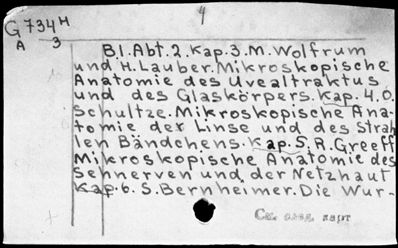 4
G 734 H
A 3
Bl. Abt. 2. Kap. 3. M. Wolfrum
und H. Lauber. Mikroskopische
Anatomie des Uvealtraktus
und des Glaskörpers. Kap. 4. O.
Schultze. Mikroskopische Ana-
tomie der Linse und des Strah
len Bändchens. Kap. 5. R. Greeff
Mikroskopische Anatomie des
Sehnerven und der Netzhaut
Kap. 6. S. Bernheimer. Die Wur-
См. след. карт